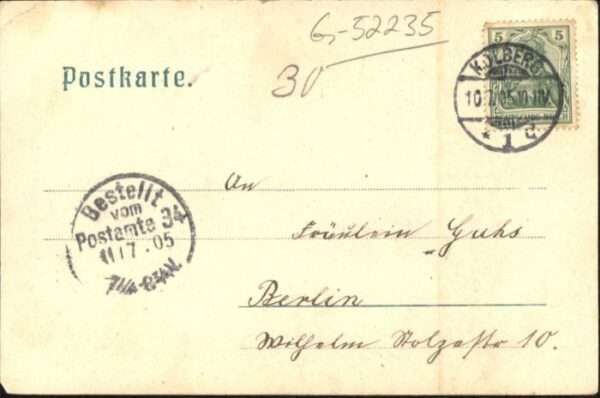 G-52235
30
5 5
Postkarte.
KOLBERG
10.7.05.
* 1 d.
An
Bestellt
vom
Postamte 34
11 7.05
Fräulein Guhs
Berlin
Wilhelm Stolzestr 10.